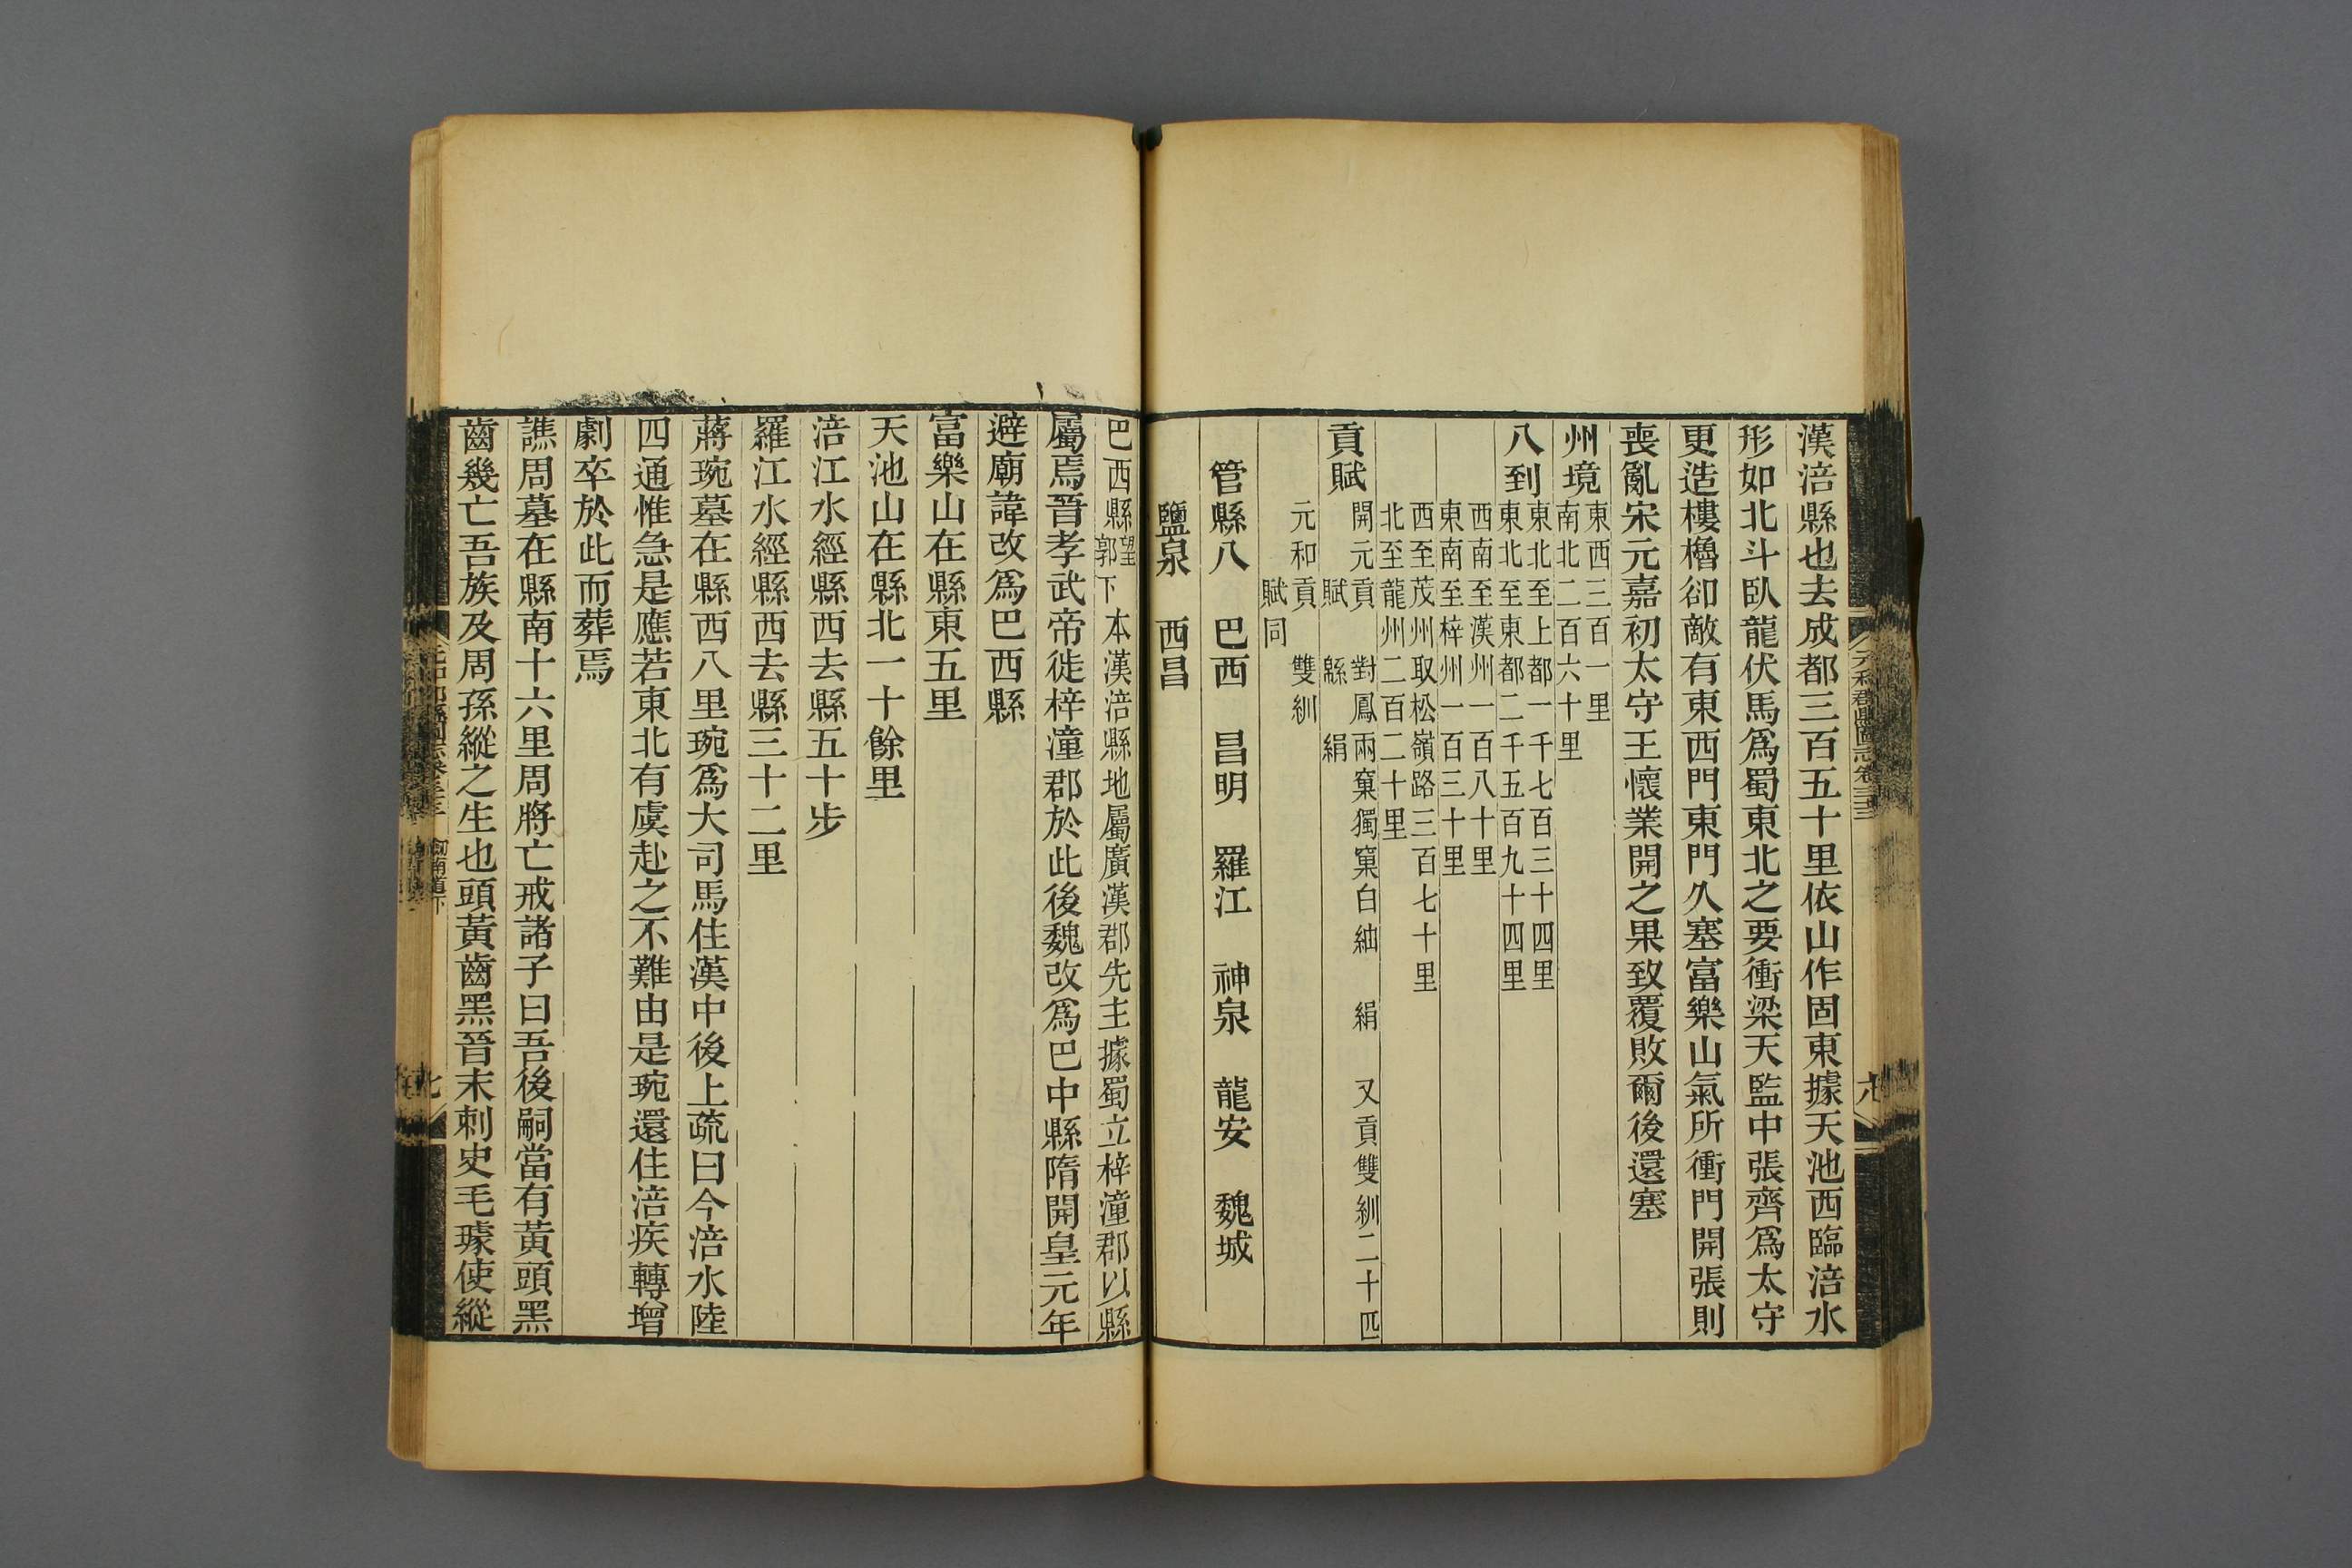 漢涪縣也去成都三百五十里依山作固東據天池西臨涪水
形如北斗臥龍伏馬爲蜀東北之要衝梁天監中張齊爲太守
更造樓櫓卻敵有東西門東門久塞富樂山氣所衝門開張則
喪亂宋元嘉初太守王懷業開之果致覆敗爾後還塞
州境東西三百一里
南北二百六十里
八到東北至上都一千七百三十四里
東北至東都二千五百九十四里
西南至漢州一百八十里
東南至梓州一百三十里
西至茂州取松嶺路三百七十里
北至龍州二百二十里
貢賦開元貢 對鳳兩窠獨窠白紬 絹 又貢雙紃二十匹
賦 緜 絹
元和貢 雙紃
賦同
管縣八 巴西 昌明 羅江 神泉 龍安 魏城
鹽泉 西昌
巴西縣望
郭下 本漢涪縣地屬廣漢郡先主據蜀立梓潼郡以縣
屬焉晉孝武帝徙梓潼郡於此後魏改爲巴中縣隋開皇元年
避廟諱改爲巴西縣
富樂山在縣東五里
天池山在縣北一十餘里
涪江水經縣西去縣五十步
羅江水經縣西去縣三十二里
蔣琬墓在縣西八里琬爲大司馬住漢中後上疏曰今涪水陸
四通惟急是應若東北有虞赴之不難由是琬還住涪疾轉增
劇卒於此而葬焉
譙周墓在縣南十六里周將亡戒諸子曰吾後嗣當有黃頭黑
齒幾亡吾族及周孫縱之生也頭黃齒黑晉末刺史毛璩使縱